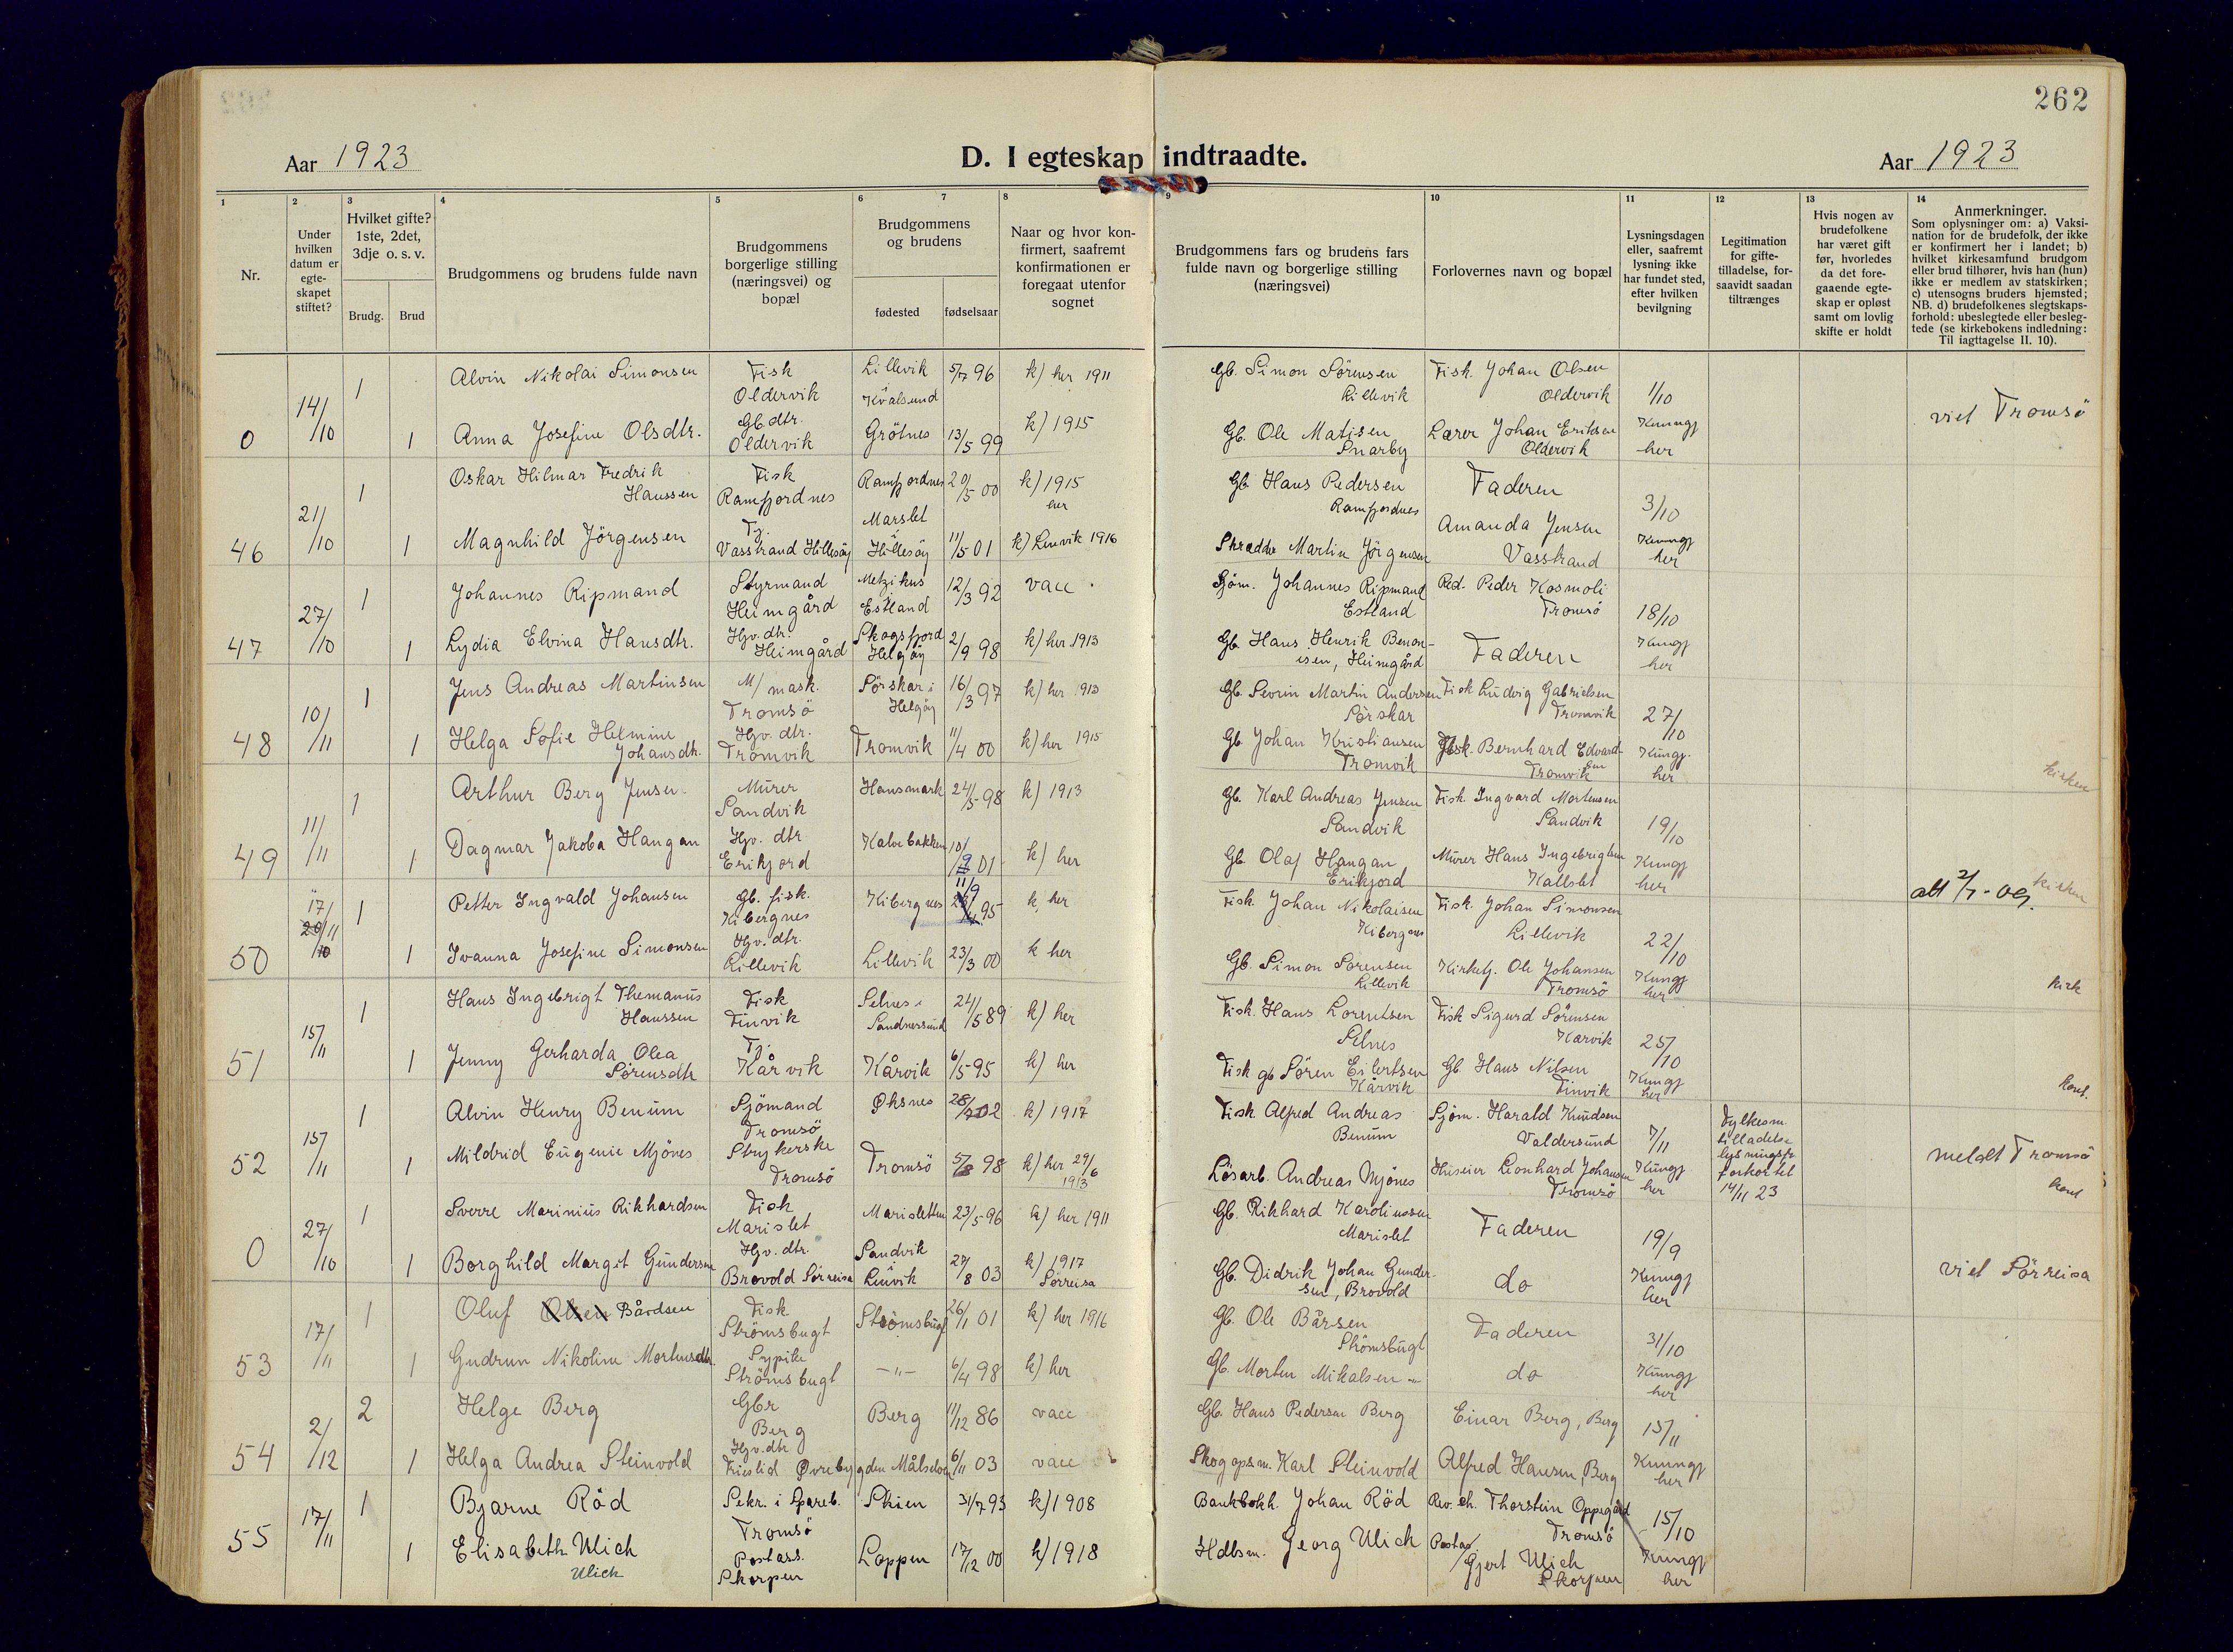 262
Aar 1923
D. I egteskap indtraadte.
Aar 1923
1
2
3
4
5
6
7
8
9
10
11
12
13
14
Nr.
Under hvilken datum er egte-skapet stiftet?
Hvilket gifte? 1ste, 2det, 3dje o. s. v.
Brudg.
Brud
Brudgommens og brudens fulde navn
Brudgommens borgerlige stilling (næringsvei) og bopæl
Brudgommens og brudens
fødested
fødselsaar
Naar og hvor kon-firmert, saafremt konfirmationen er foregaat utenfor sognet
Brudgommens fars og brudens fars fulde navn og borgerlige stilling (næringsvei)
Forlovernes navn og bopæl
Lysningsdagen eller, saafremt lysning ikke har fundet sted, efter hvilken bevilgning
Legitimation for gifte-tilladelse, for-saavidt saadan tiltrænges
Hvis nogen av brudefolkene har været gift før, hvorledes da det fore-gaaende egte-skap er opløst samt om lovlig skifte er holdt
Anmerkninger.
Som oplysninger om: a) Vaksi-nation for de brudefolk, der ikke er konfirmert her i landet; b) hvilket kirkesamfund brudgom eller brud tilhører, hvis han (hun) ikke er medlem av statskirken; c) utensogns bruders hjemsted; NB. d) brudefolkenes slegtskaps-forhold: ubeslegtede eller besleg-tede (se kirkebokens indledning: Til iagttagelse II. 10).
0 14/10
1 Alvin Nikolai Simonsen Fisk Oldervik Lillevik Kvalsund 5/7 96 k) her 1911 Gb. Simon Sörensen Lillevik Fisk. Johan Olsen Oldervik 1/10
1 Anna Josefine Olsdtr. Gb dtr. Oldervik Grötnes 13/5 99 k) 1915 Gb. Ole Matisen Snarby Lærer Johan Eriksen Oldervik Kunngj her viet Tromsö
46 21/10
1 Oskar Hilmar Fredrik Hanssen Fisk Ramfjordnes Ramfjordnes 20/5 00 k) 1915 her Gb. Hans Pedersen Ramfjordnes Faderen 3/10
1 Magnhild Jörgensen Tj. Vasstrand Hillesöy Marslet Hillesöy 11/5 01 k) Lenvik 1916 Skredder Martin Jörgensen Amanda Jensen Vasstrand Kunngj her
47 27/10
1 Johannes Ripmand Styrmand Heimgård Estland 12/3 92 vacc. Sjöm. Johannes Ripmand Estland Red. Peder Kosmoli Tromsö 18/10
1 Lydia Elvina Hansdtr. Hjv. dtr. Heimgård Skogsfjord Helgöy 2/9 98 k) her 1913 Gb Hans Henrik Benon-isen, Heimgård Faderen Kungj her
48 10/11
1 Jens Andreas Martinsen M/mask. Tromsö Sörskar i Helgöy 16/3 97 k) her 1913 Gb. Sevrin Martin Andersen Sörskar Fisk Ludvig Gabrielsen Tromvik 27/10
1 Helga Sofie Helmine Johansdtr. Hjv. dtr. Tromvik Tromvik 11/4 00 k) her 1915 Gb Johan Kristiansen Tromvik Fisk. Bernhard Edvard-sen Tromvik Kungj. her
kirken
49 11/11
1 Arthur Berg Jensen Murer Sandvik Hansmark 24/5 98 k) 1913 Gb. Karl Andreas Jensen Sandvik Fisk. Ingvard Mortensen Sandvik 19/10
1 Dagmar Jakoba Haugan Hjv. dtr Erikfjord Kalvebakken 10/9 01 k) her Gb Olaf Haugan Erikfjord Murer Hans Ingebrigtsen Kallslet Kungj her
kirken
50 17/11
1 Petter Ingvald Johansen Gb. fisk. Kibergnes Kibergnes 11/9 95 k, her Fisk. Johan Nikolaisen Kibergnes Fisk. Johan Simonsen Lillevik 22/10
1 Ivanna Josefine Simonsen Hjv. dtr. Lillevik Lillevik 23/3 00 k her Gb. Simon Sörensen Lillevik Kirketj. Ole Johansen Tromsö Kungj her
kirk
51 15/11
1 Hans Ingebrigt Themanus Hanssen Fisk Finvik Selnes i Sandnessund 24/5 89 k) her Fisk. Hans Lorentsen Selnes Fisk Sigurd Sörensen Karvik 25/10
1 Jenny Gerharda Olea Sörensdtr Tj. Kårvik Kårvik 6/5 95 k) her Fisk gb Sören Eilertsen Kårvik Gb Hans Nilsen Finvik Kungj her
52 15/11
1 Alvin Henry Benum Sjömand Tromsö Øksnes 28/7 02 k) 1917 Fisk Alfred Andreas Benum Sjöm. Harald Knudsen Valdersund 7/11 Fylkesm. tilladelse lysningsfr forkortet 14/11 23
1 Mildrid Eugenie Mjönes Strykerske Tromsö Tromsö 5/8 98 k) her 29/6 1913 Lösarb. Andreas Mjönes Huseier Leonhard Johansen Tromsö Kungj her meldt Tromsö
0 27/10
1 Sverre Marinius Rikhardsen Fisk Marislet Marisletten 23/5 96 k) her 1911 Gb. Rikhard Karoliussen Marislet Faderen 19/9
1 Borghild Margit Gundersen Hjv. dtr. Brovold Sörreisa Sandvik Lenvik 27/8 03 k) 1917 Sörreisa Gb. Didrik Johan Gunder-sen, Brovold do Kunngj her viet Sörreisa
53 17/11
1 Oluf Olsen Bårdsen Fisk Strömsbugt Strömsbugt 26/1 01 k) her 1916 Gb. Ole Bårsen Strömsbugt Faderen 31/10
1 Gudrun Nikoline Mortensdtr. Sypike Strömsbugt -"- 6/4 98 k) her Gb. Morten Mikalsen -"- do Kunngj her
54 2/12
2 Helge Berg Gbr Berg Berg 11/12 86 vacc Gb. Hans Pedersen Berg Einar Berg, Berg 15/11
1 Helga Andrea Steinvold Hjv. dtr Frieslid Øvrebygden Målselven 6/11 03 vacc Skogopsm. Karl Steinvold Alfred Hansen, Berg Kunngj her
55 17/11
1 Bjarne Röd Sekr. i Spareb. Tromsö Skien 31/7 93 k) 1908 Bankbokh. Johan Röd Rev. ch. Thorstein Oppegård Tromsö 15/10
1 Elisabeth Ulich Ulich Postass. Skorpen Loppen 17/12 00 k) 1918 Hdlsm. Georg Ulich Gjert Ulich Skorpen Kunngj her